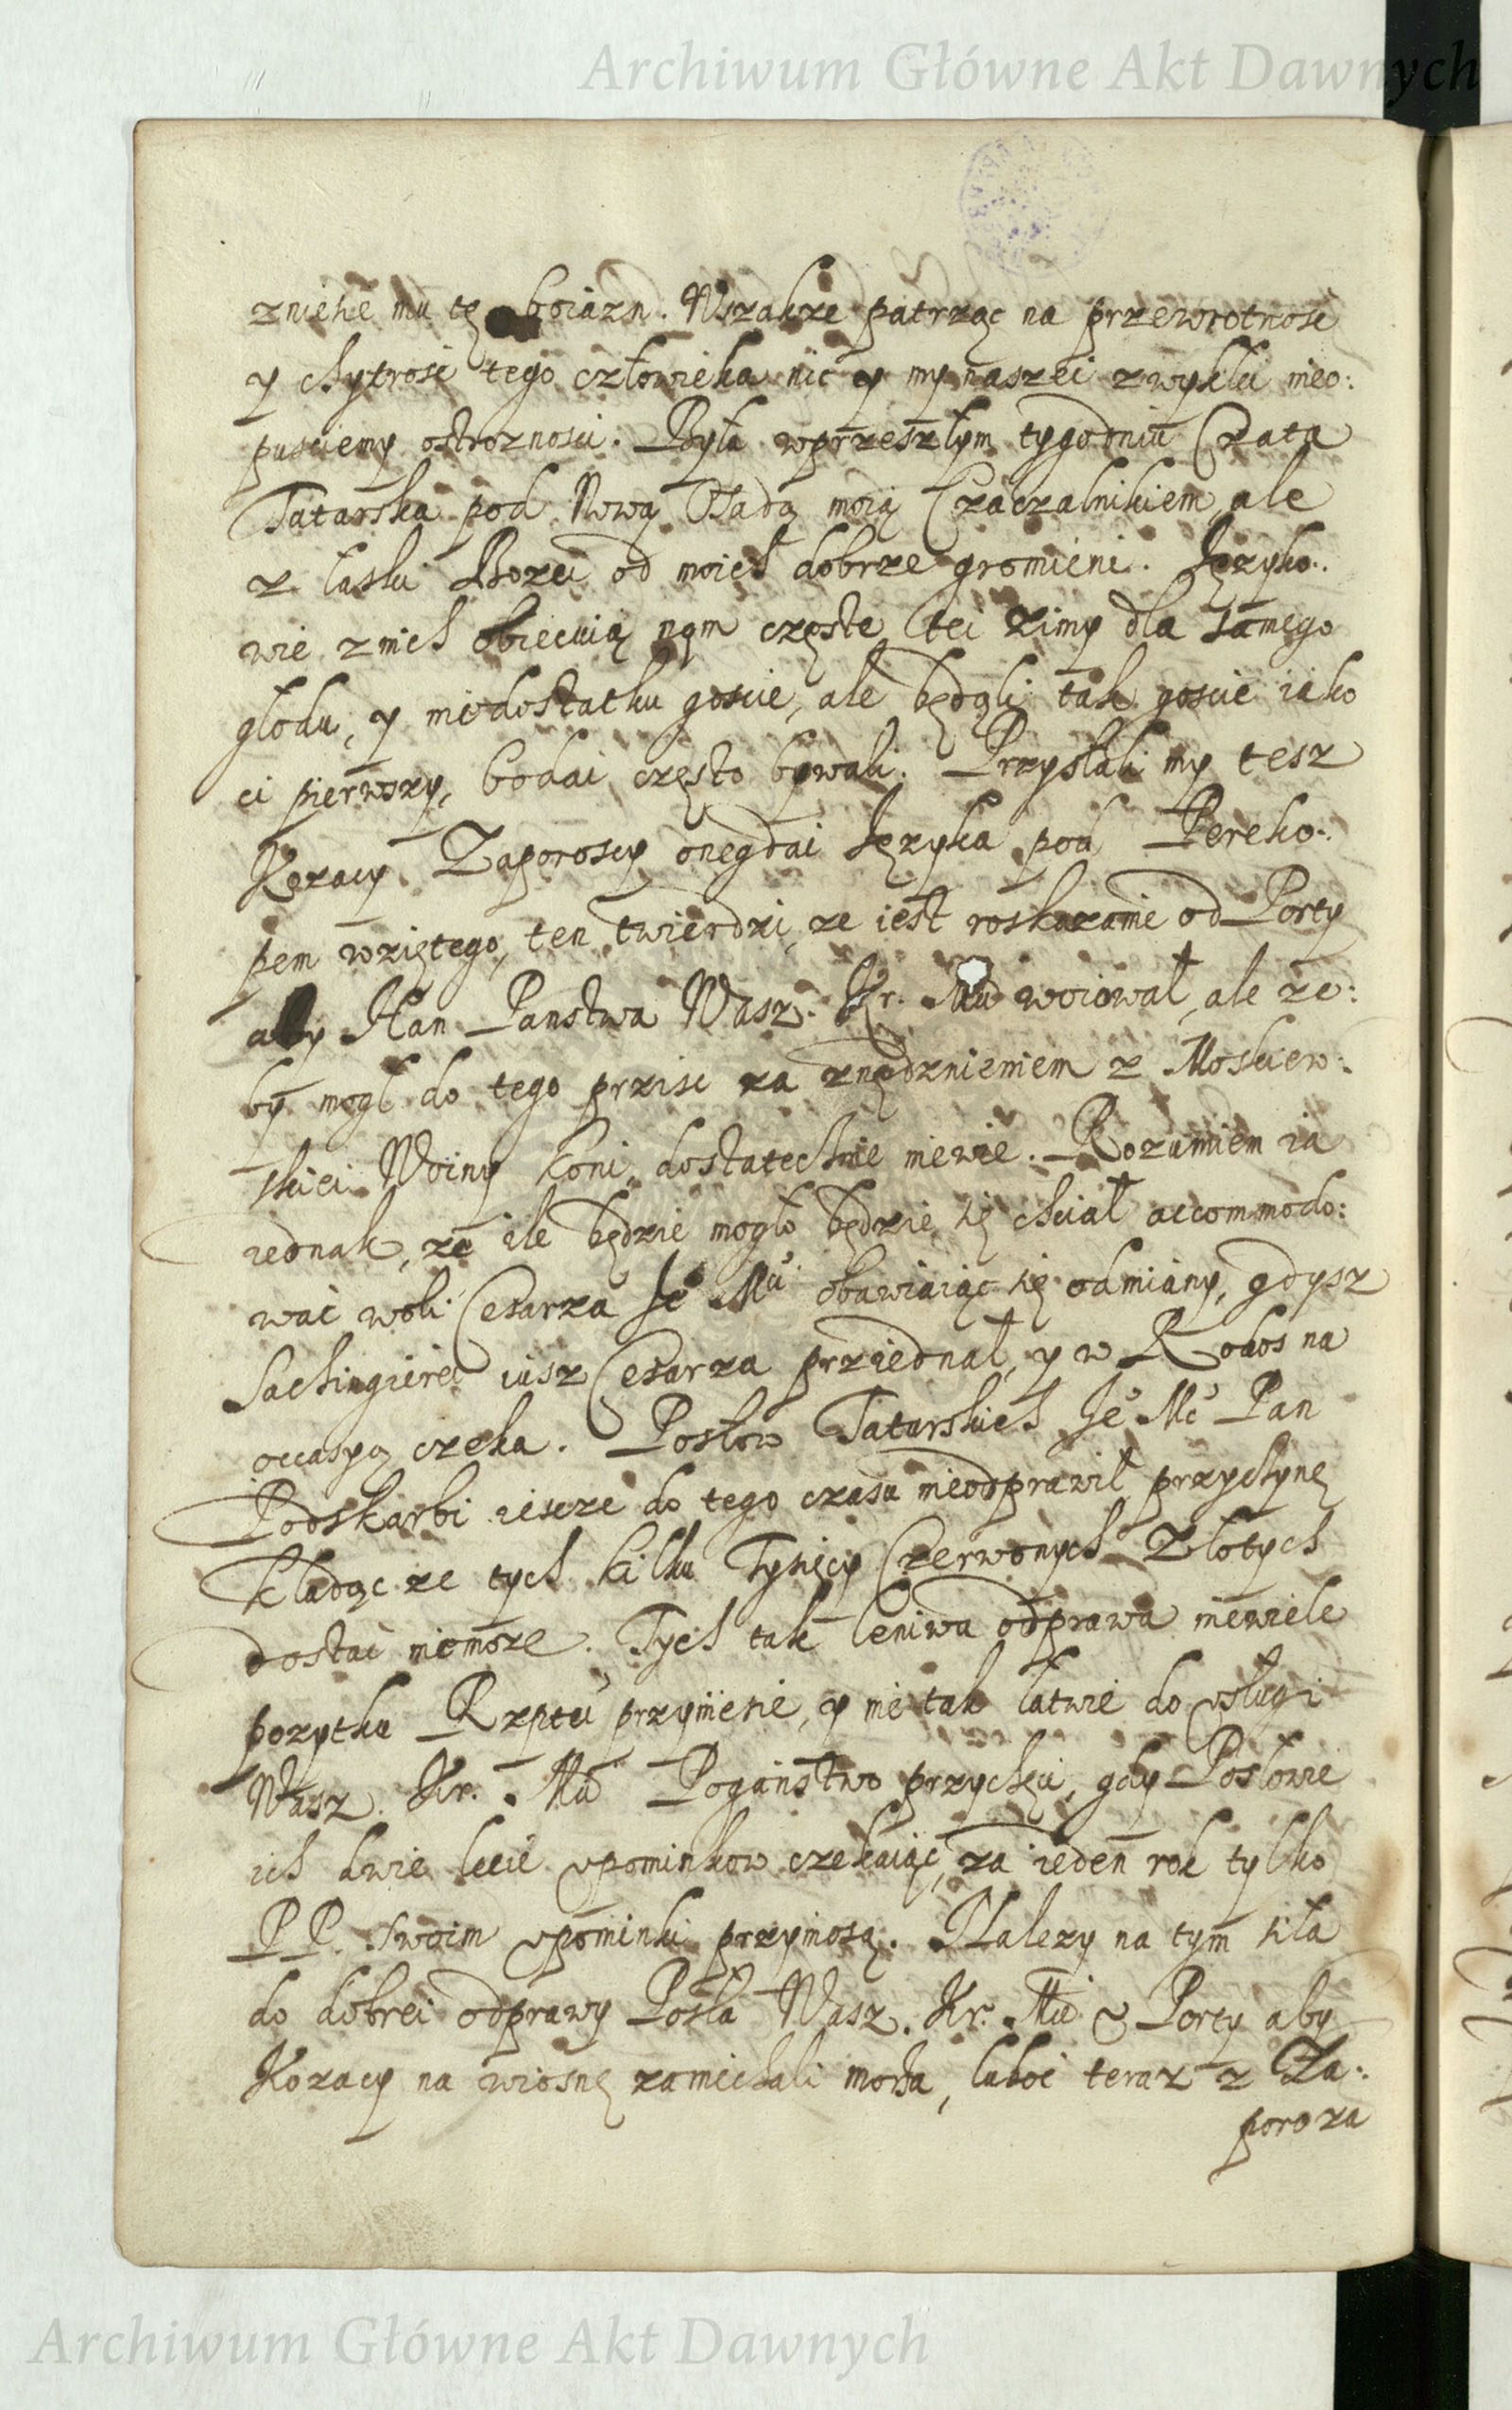 Archiwum Główne Akt Dawnych
zniesie mu tę boiazn. Wszakze patrząc na przewrotnosc
y chytrosc tego człowieka nic y my naszei zwykłei nieo:
pusciemy ostroznosci. Była wprzeszłym tygodniu Czata
Tatarska pod Nową Osadą moią Czaczalnikiem, ale
z łaski Bozei od moich dobrze gromieni. Języko:
wie z nich obiecuią nąm częste tei zimy dla samego
głodu, y niedostatku goscie, ale będąli tak goscie iako
ci pierwszy, bodai często bywali. Przysłali my tesz
Kozacy Zaporoscy onegdai Języka pod Pereko:
pem wziętego, ten twierdzi, ze iest roskazanie od Porty
aby Han Panstwa Wasz. Kr. Mci woiował, ale ze:
by mogł do tego przisc za znędznieniem z Moskiew:
skiei Woiny koni, dostatecznie niewie. Rozumiem ia
iednak, ze ile będzie mogło będzie się chciał accommodo:
wac woli Cesarza Je Mci obawiaiąc się odmiany, gdysz
Sachingierei iusz Cesarza przeiednał, y w Rodos na
occasyą czeka. Posłow Tatarskich Je Mc Pan
Podskarbi iescze do tego czasu nieodprawił przyczynę
kładąc ze tych kilku Tysięcy Czerwonych Złotych
dostac niemoze. Tych tak leniwa odprawa niewiele
pozytku Rzptei przyniesie, y nie tak łatwie do usługi
Wasz. Kr. Mci Poganstwo przychęci, gdy Posłowie
ich dwie lecie upominkow czekaiąc, za ieden rok tylko
P P. swoim upominki przyniosą. Nalezy na tym siła
do dobrei odprawy Posła Wasz. Kr. Mci u Porty aby
Kozacy na wiosnę zaniechali morza, luboc teraz z Za:
poroza
Archiwum Główne Akt Dawnych